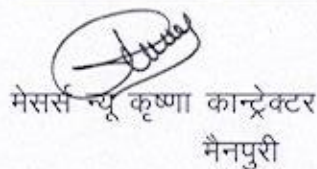 मेसर्स न्यू कृष्णा कान्ट्रेक्टर
मैनपुरी